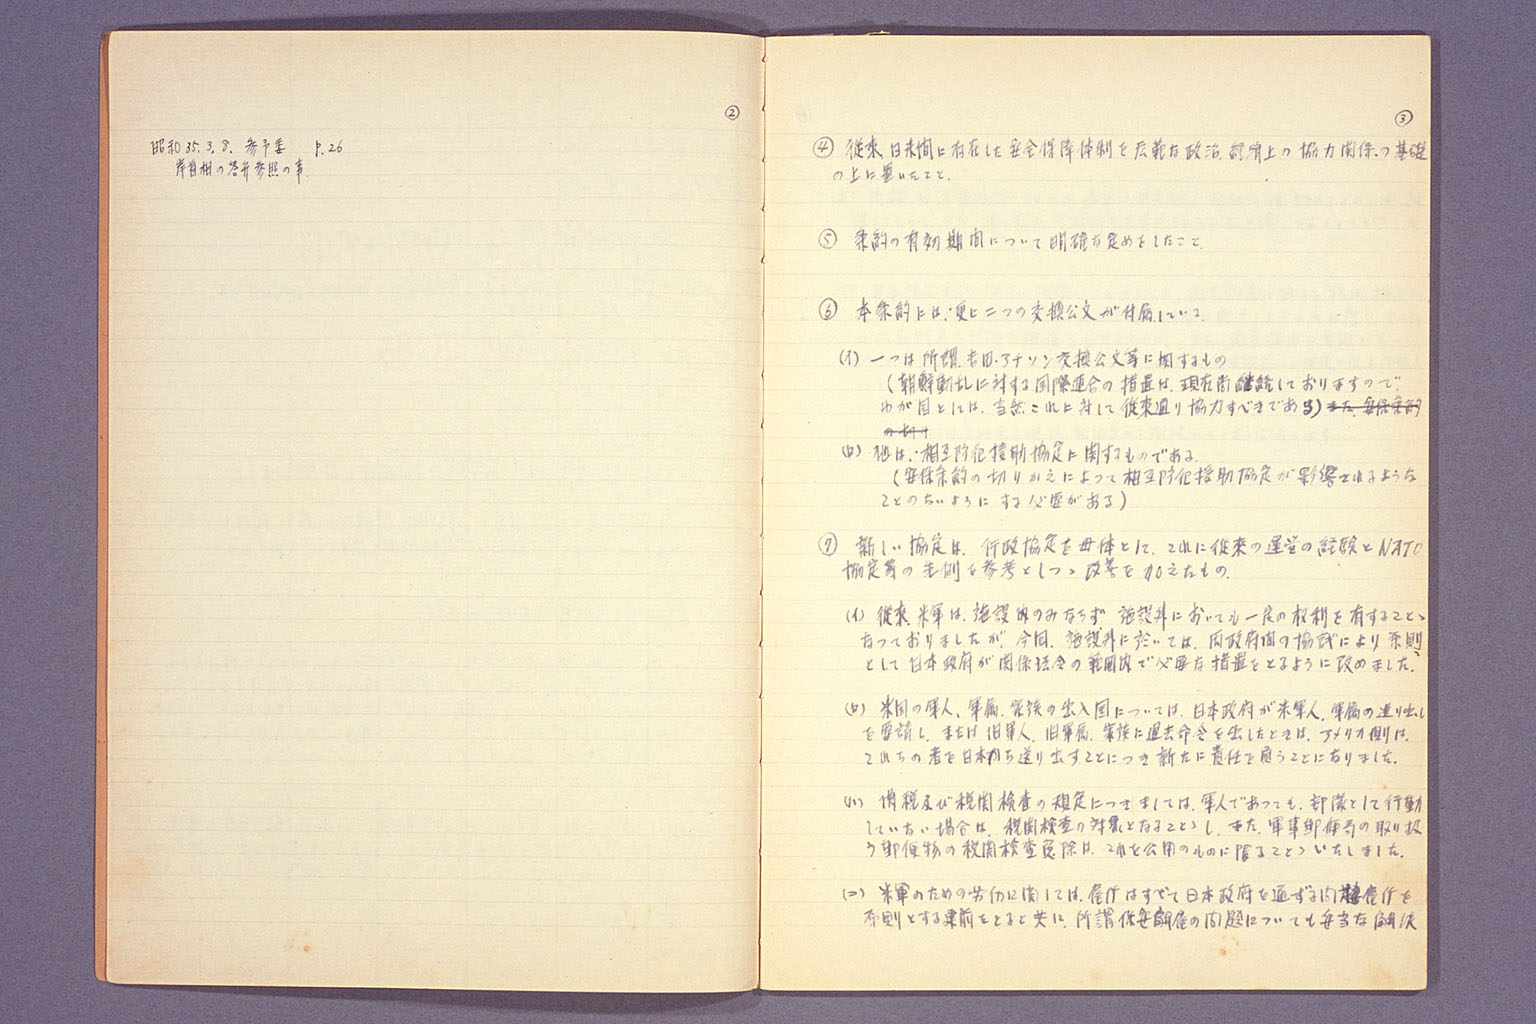 ②
昭和35.3.8. 参予委 P.26
岸首相の答弁参照の事.
③
④ 従来、日米間に存在した安全保障体制を広範な政治、経済上の協力関係の基礎
の上に置いたこと.
⑤ 条約の有効期間について明確な定めをしたこと.
⑥ 本条約には、更に二つの交換公文が付属している
(イ) 一つは所謂、吉田・アチソン交換公文等に関するもの
(朝鮮動乱に対する国際連合の措置は、現在尚継続しておりますので、
わが国としては、当然これに対して従来通り協力すべきである) また、安保条約
の切り
(ロ) 他は、相互防衛援助協定に関するものである.
(安保条約の切りかえによって相互防衛援助協定が影響されるような
ことのないようにする必要がある)
⑦ 新しい協定は、行政協定を母体として、これに従来の運営の経験とNATO
協定等の先例を参考としつゝ改善を加えたもの.
(イ) 従来、米軍は、施設内のみならず 施設外においても一定の権利を有することゝ
なっておりましたが、今回、施設外に於いては、両政府間の協議により 原則
として日本政府が関係法令の範囲内で必要な措置をとるように改めました.
(ロ) 米国の軍人、軍属、家族の出入国については、日本政府が米軍人、軍属の送り出し
を要請し、または旧軍人、旧軍属、家族に退去命令を出したときは、アメリカ側は、
これらの者を日本から送り出すことにつき新たに責任を負うことになりました.
(ハ) 関税及び税関検査の規定につきましては、軍人であっても、部隊として行動
していない場合は、税関検査の対象となることゝし、また、軍事郵便局の取り扱
う郵便物の税関検査免除は、これを公用のものに限ることゝいたしました.
(ニ) 米軍のための労働に関しては、雇用はすべて日本政府を通ずる間接雇用を
原則とする建前をとると共に、所謂保安解雇の問題についても妥当な解決